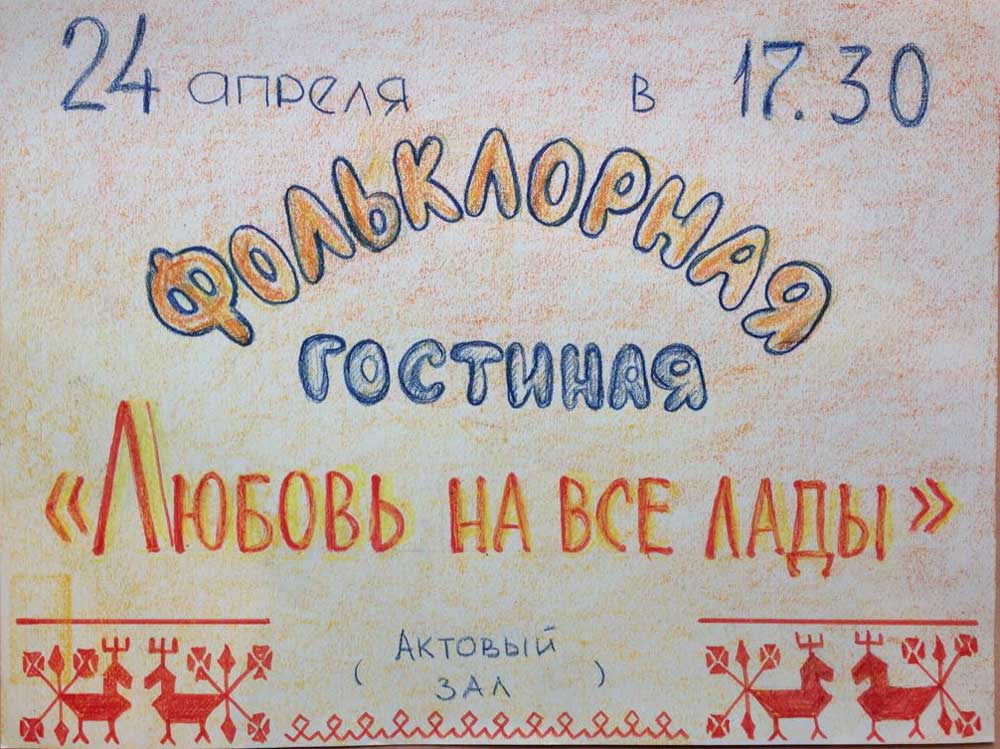 24 апреля в 17.30
ФОЛЬКЛОРНАЯ
ГОСТИНАЯ
«ЛЮБОВЬ НА ВСЕ ЛАДЫ»
(АКТОВЫЙ
ЗАЛ)